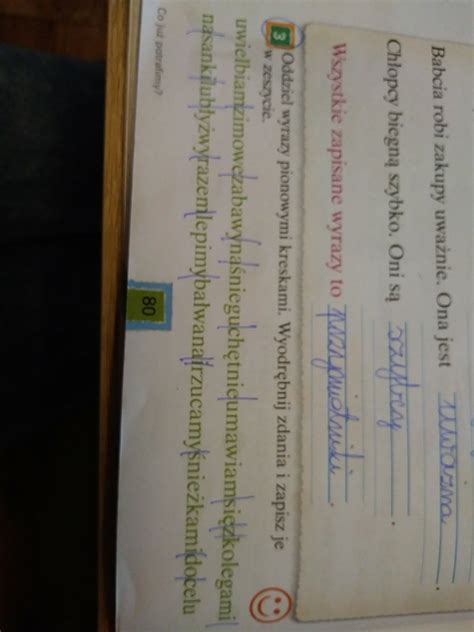 Babcia robi zakupy uważnie. Ona jest uważna.
Chłopcy biegną szybko. Oni są szybcy.
Wszystkie zapisane wyrazy to przymiotniki.
3 Oddziel wyrazy pionowymi kreskami. Wyodrębnij zdania i zapisz je
w zeszycie.
uwielbiamzimowezabawynaśnieguchętnieumawiamsięzkolegami
nasankilubłyżwyrazemlepimybałwanairzucamyśnieżkamidocelu
Co już potrafimy?
80